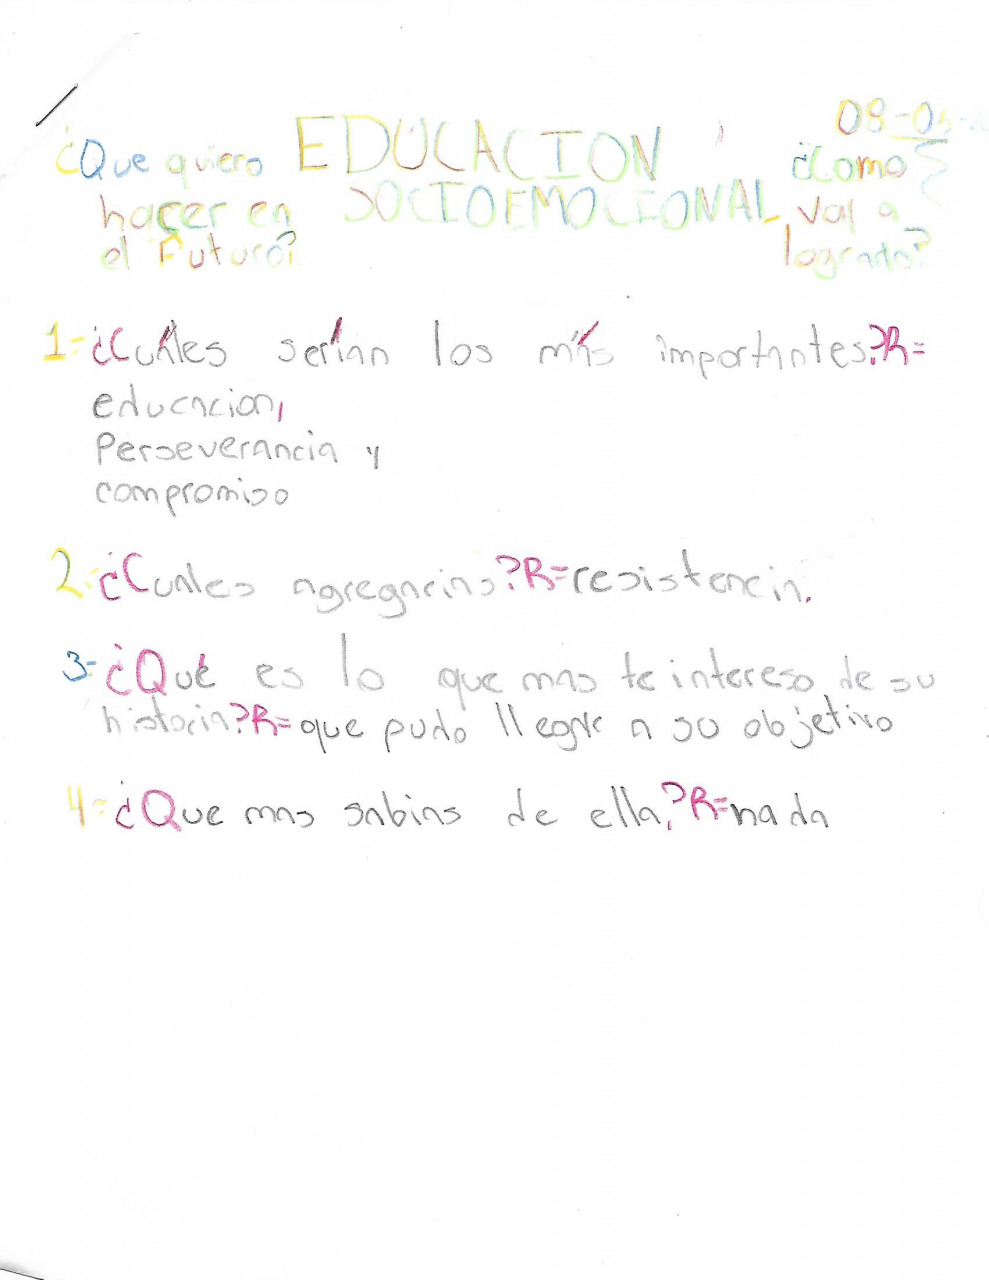 08-05-
EDUCACION
SOCIOEMOCIONAL
¿Que quiero
hacer en
el Futuro?
¿Como
Vas a
lograrlo?
1- ¿Cuáles serían los más importantes?R=
educacion,
Perseverancia y
compromiso
2- ¿Cuales agregarias?R=resistencia.
3- ¿Qué es lo que mas te intereso de su
historia?R=que pudo llegar a su objetivo
4- ¿Que mas sabias de ella?R=nada